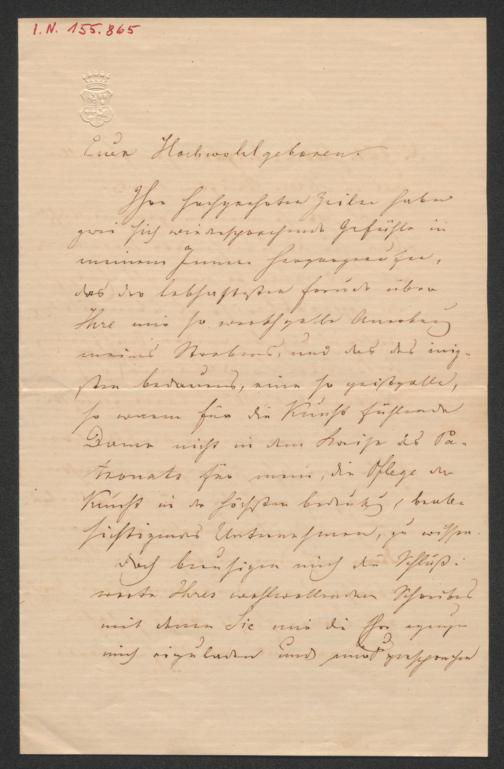 I. N. 155.865
Euer Hochwohlgeboren.
Ihre hochgeehrten Zeilen haben
zwei sich widersprechende Gefühle in
meinem Innern hervorgerufen,
das der lebhaftesten Freude über
Ihre mir so werthvolle Anerkennung
meines Strebens, und das des innig-
sten Bedauerns, eine so geistvolle,
so warm für die Kunst fühlende
Dame nicht in dem Kreise des Pa-
tronats für mein, die Pflege der
Kunst in der höchsten Bedeutung beab-
sichtigendes Unternehmen, zu wissen.
Doch beruhigen mich die Schluß-
worte Ihres wohlwollenden Schreibens
mit denen Sie mir die Ehre
mich einzuladen und